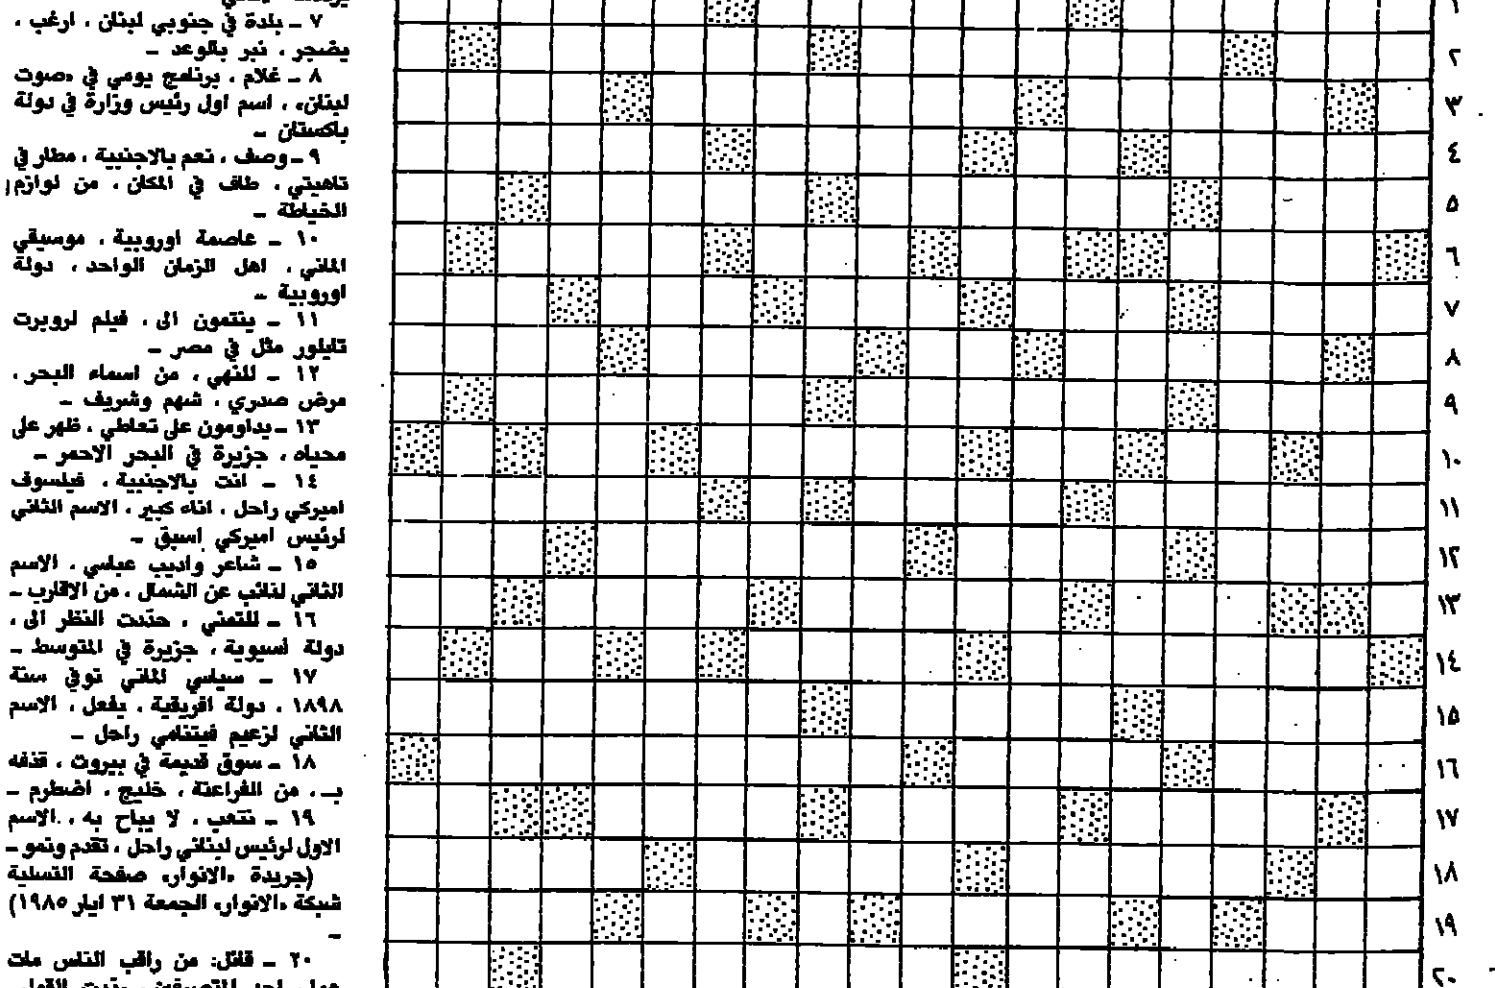 ٧ ــ بلدة في جنوبي لبنان ، ارغب ،
يضجر ، نبر بالوعد ــ
٨ ــ غلام ، برنامج يومي في «صوت
لبنان» ، اسم اول رئيس وزارة في دولة
باكستان ــ
٩ ــ وصف ، نعم بالاجنبية ، مطار في
تاهيتي ، طاف في المكان ، من لوازم
الخياطة ــ
١٠ ــ عاصمة اوروبية ، موسيقي
الماني ، اهل الزمان الواحد ، دولة
اوروبية ــ
١١ ــ ينتمون الى ، فيلم لروبرت
تايلور مثل في مصر ــ
١٢ ــ للنهي ، من اسماء البحر ،
مرض صدري ، شهم وشريف ــ
١٣ ــ يداومون على تعاطي ، ظهر على
محياه ، جزيرة في البحر الاحمر ــ
١٤ ــ انت بالاجنبية ، فيلسوف
اميركي راحل ، اناء كبير ، الاسم الثاني
لرئيس اميركي اسبق ــ
١٥ ــ شاعر واديب عباسي ، الاسم
الثاني لنائب عن الشمال ، من الاقارب ــ
١٦ ــ للتمني ، حدّدت النظر الى ،
دولة اسيوية ، جزيرة في المتوسط ــ
١٧ ــ سياسي الماني توفي سنة
١٨٩٨ ، دولة افريقية ، يفعل ، الاسم
الثاني لزعيم فيتنامي راحل ــ
١٨ ــ سوق قديمة في بيروت ، قذفه
بـ ، من الفراعنة ، خليج ، اضطرم ــ
١٩ ــ نتعب ، لا يباح به ، الاسم
الاول لرئيس لبناني راحل ، تقدم ونمو ــ
(جريدة «الانوار» صفحة التسلية
شبكة «الانوار» الجمعة ٣١ ايار ١٩٨٥)
ــ
٢٠ ــ قائل: من راقب الناس مات
١
٢
٣
٤
٥
٦
٧
٨
٩
١٠
١١
١٢
١٣
١٤
١٥
١٦
١٧
١٨
١٩
٢٠